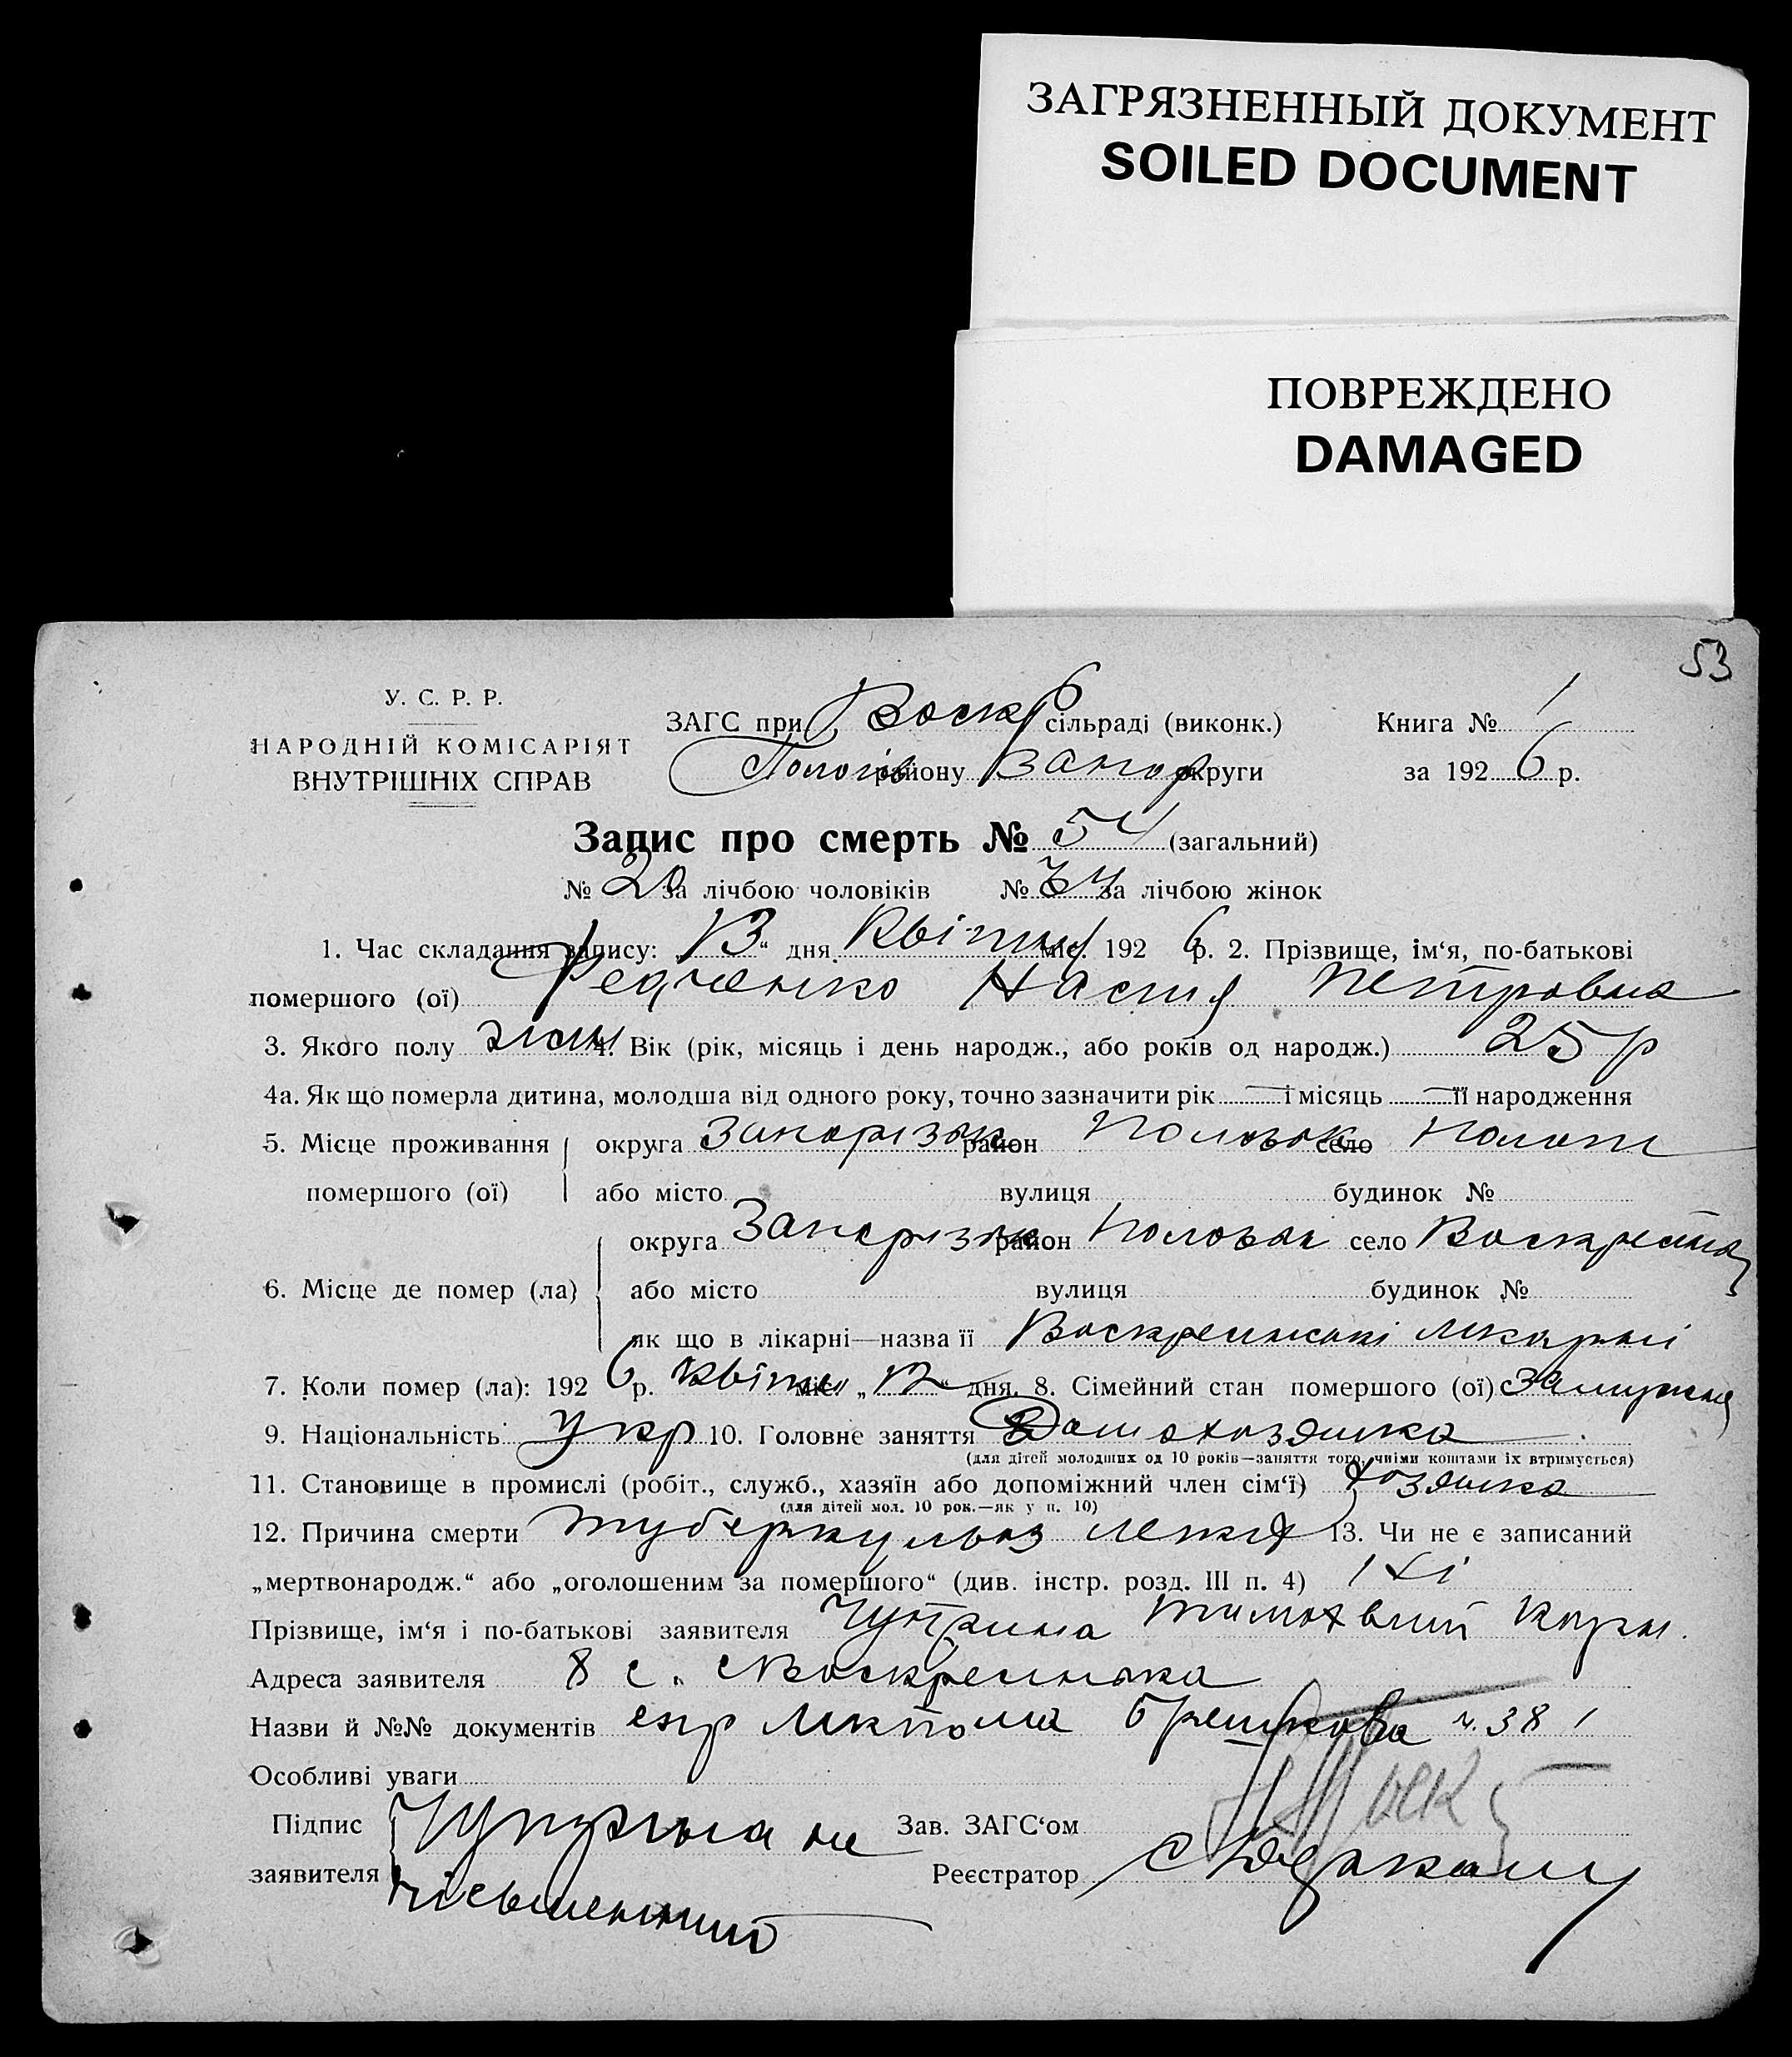 ЗАГРЯЗНЕННЫЙ ДОКУМЕНТ
SOILED DOCUMENT
ПОВРЕЖДЕНО
DAMAGED
53
У. С. Р. Р.
НАРОДНІЙ КОМІСАРІЯТ
ВНУТРІШНІХ СПРАВ
ЗАГС при Воскр сільраді (виконк.) Книга № 1
Пологів району Запор округи за 1926 р.
Запис про смерть № 54 (загальний)
№ 20 за лічбою чоловіків № 34 за лічбою жінок
1. Час складання запису: 13 “ дня Квітня міс. 1926 р. 2. Прізвище, ім‘я, по-батькові
помершого (ої) Федченко Настя Петровна
3. Якого полу жін 4. Вік (рік, місяць і день народж., або років од народж.) 25 р
4а. Як що померла дитина, молодша від одного року, точно зазначити рік — і місяць — її народження
5. Місце проживання округа Запорізьк район село Пологи
помершого (ої) або місто вулиця будинок №
округа Запорізьк район село
6. Місце де помер (ла) або місто вулиця будинок №
як що в лікарні—назва її лікарні
7. Коли помер (ла): 1926 р. Квітня міс. „ 12 “ дня. 8. Сімейний стан помершого (ої) Замужня
9. Національність Укр 10. Головне заняття Домохозяйка
(для дітей молодших од 10 років—заняття того, чиїми коштами їх втримується)
11. Становище в промислі (робіт., служб., хазяїн або допоміжний член сім‘ї) Хозяйка
(для дітей мол. 10 рок.—як у п. 10)
12. Причина смерти туберкульоз легких 13. Чи не є записаний
„мертвонародж.“ або „оголошеним за помершого“ (див. інстр. розд. III п. 4) Ні
Прізвище, ім‘я і по-батькові заявителя Чуприна Тимохвий
Адреса заявителя с. Воскресенька
Назви й №№ документів ч. 381
Особливі уваги
Підпис Чуприна не Зав. ЗАГС‘ом
заявителя пісьменний Реєстратор